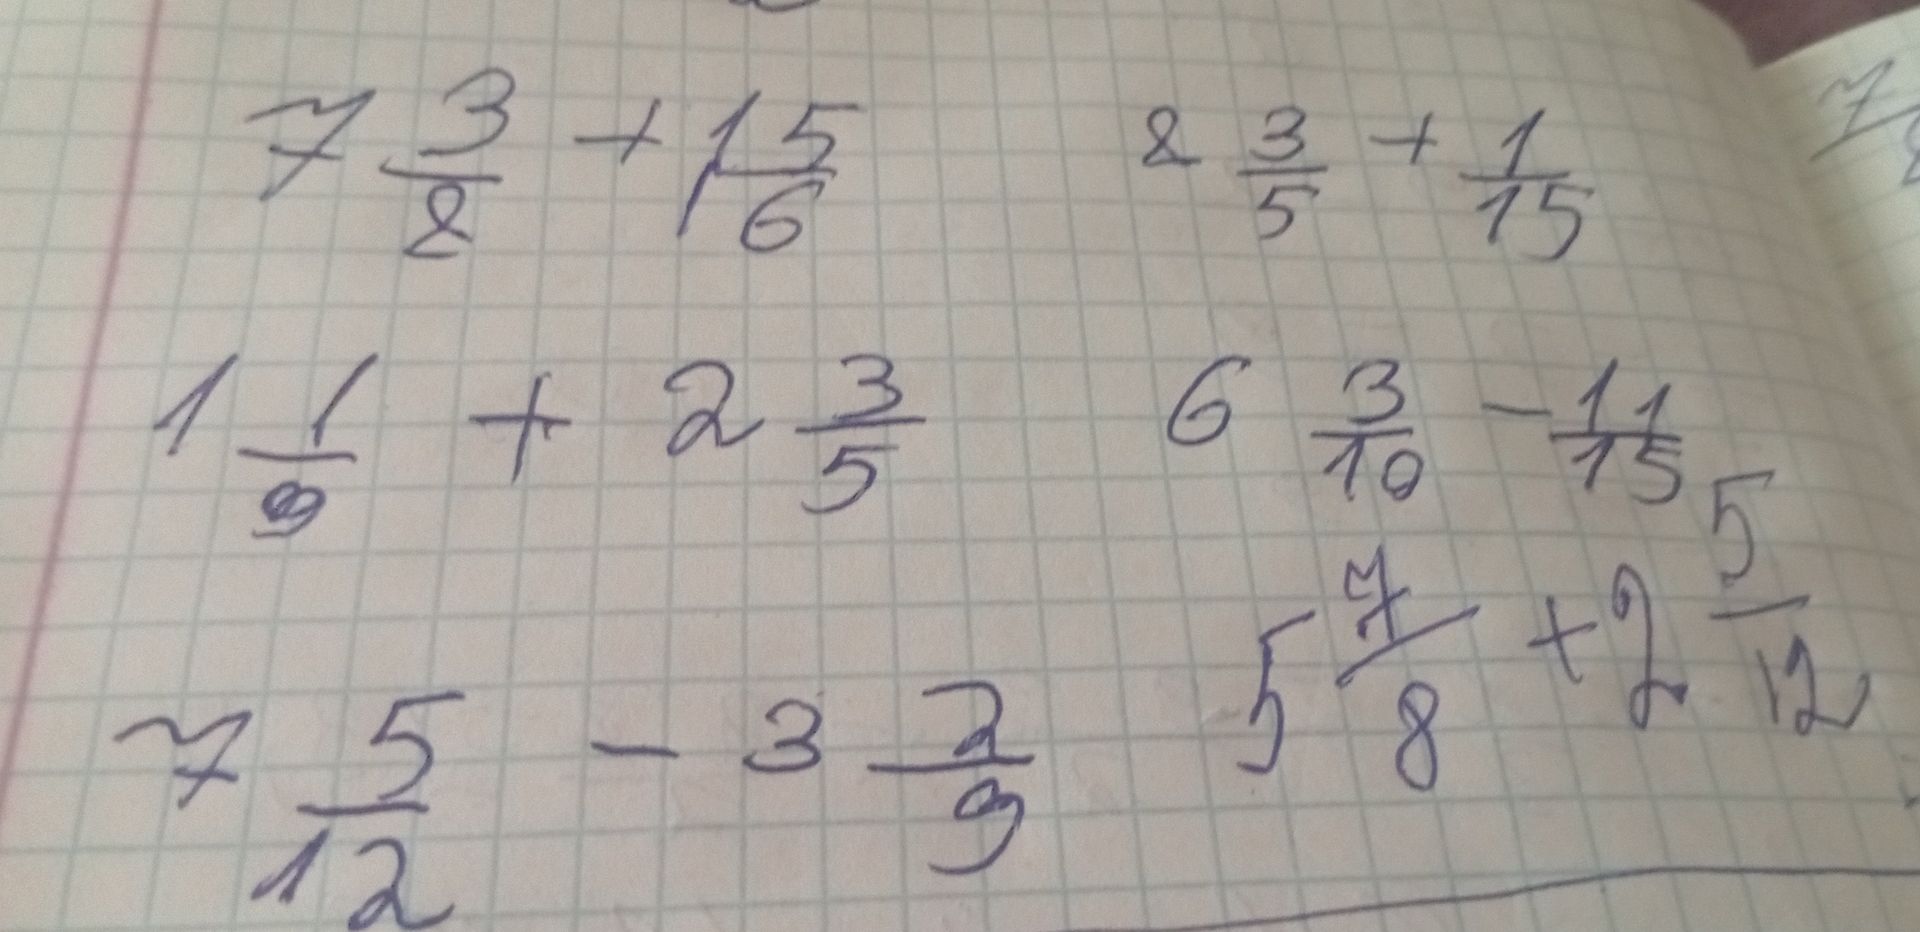 7 3/8 + 1 5/6    8 3/5 + 1/15
1 1/9 + 2 3/5    6 3/10 - 11/15
7 5/12 - 3 2/9    5 7/8 + 2 5/12
7